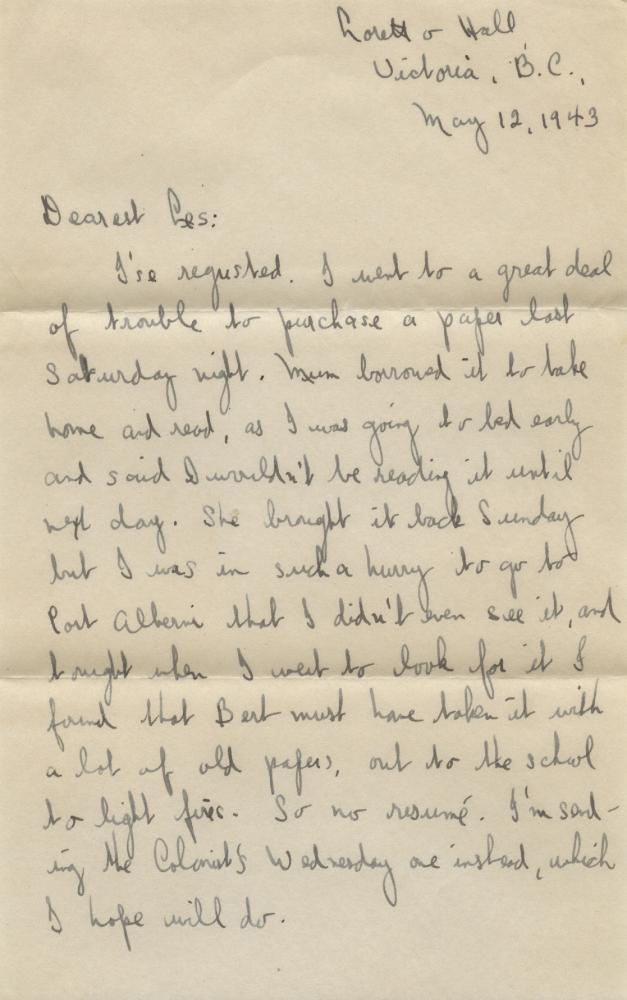 Loretto Hall,
Victoria, B.C.,
May 12, 1943
Dearest Les:
I'se regusted. I went to a great deal
of trouble to purchase a paper last
Saturday night. Mum borrowed it to take
home and read, as I was going to bed early
and said I wouldn't be reading it until
next day. She brought it back Sunday
but I was in such a hurry to go to
Port Alberni that I didn't even see it, and
tonight when I went to look for it I
found that Bert must have taken it with
a lot of old papers, out to the school
to light fires. So no resumé. I'm send-
ing the Colonist's Wednesday one instead, which
I hope will do.